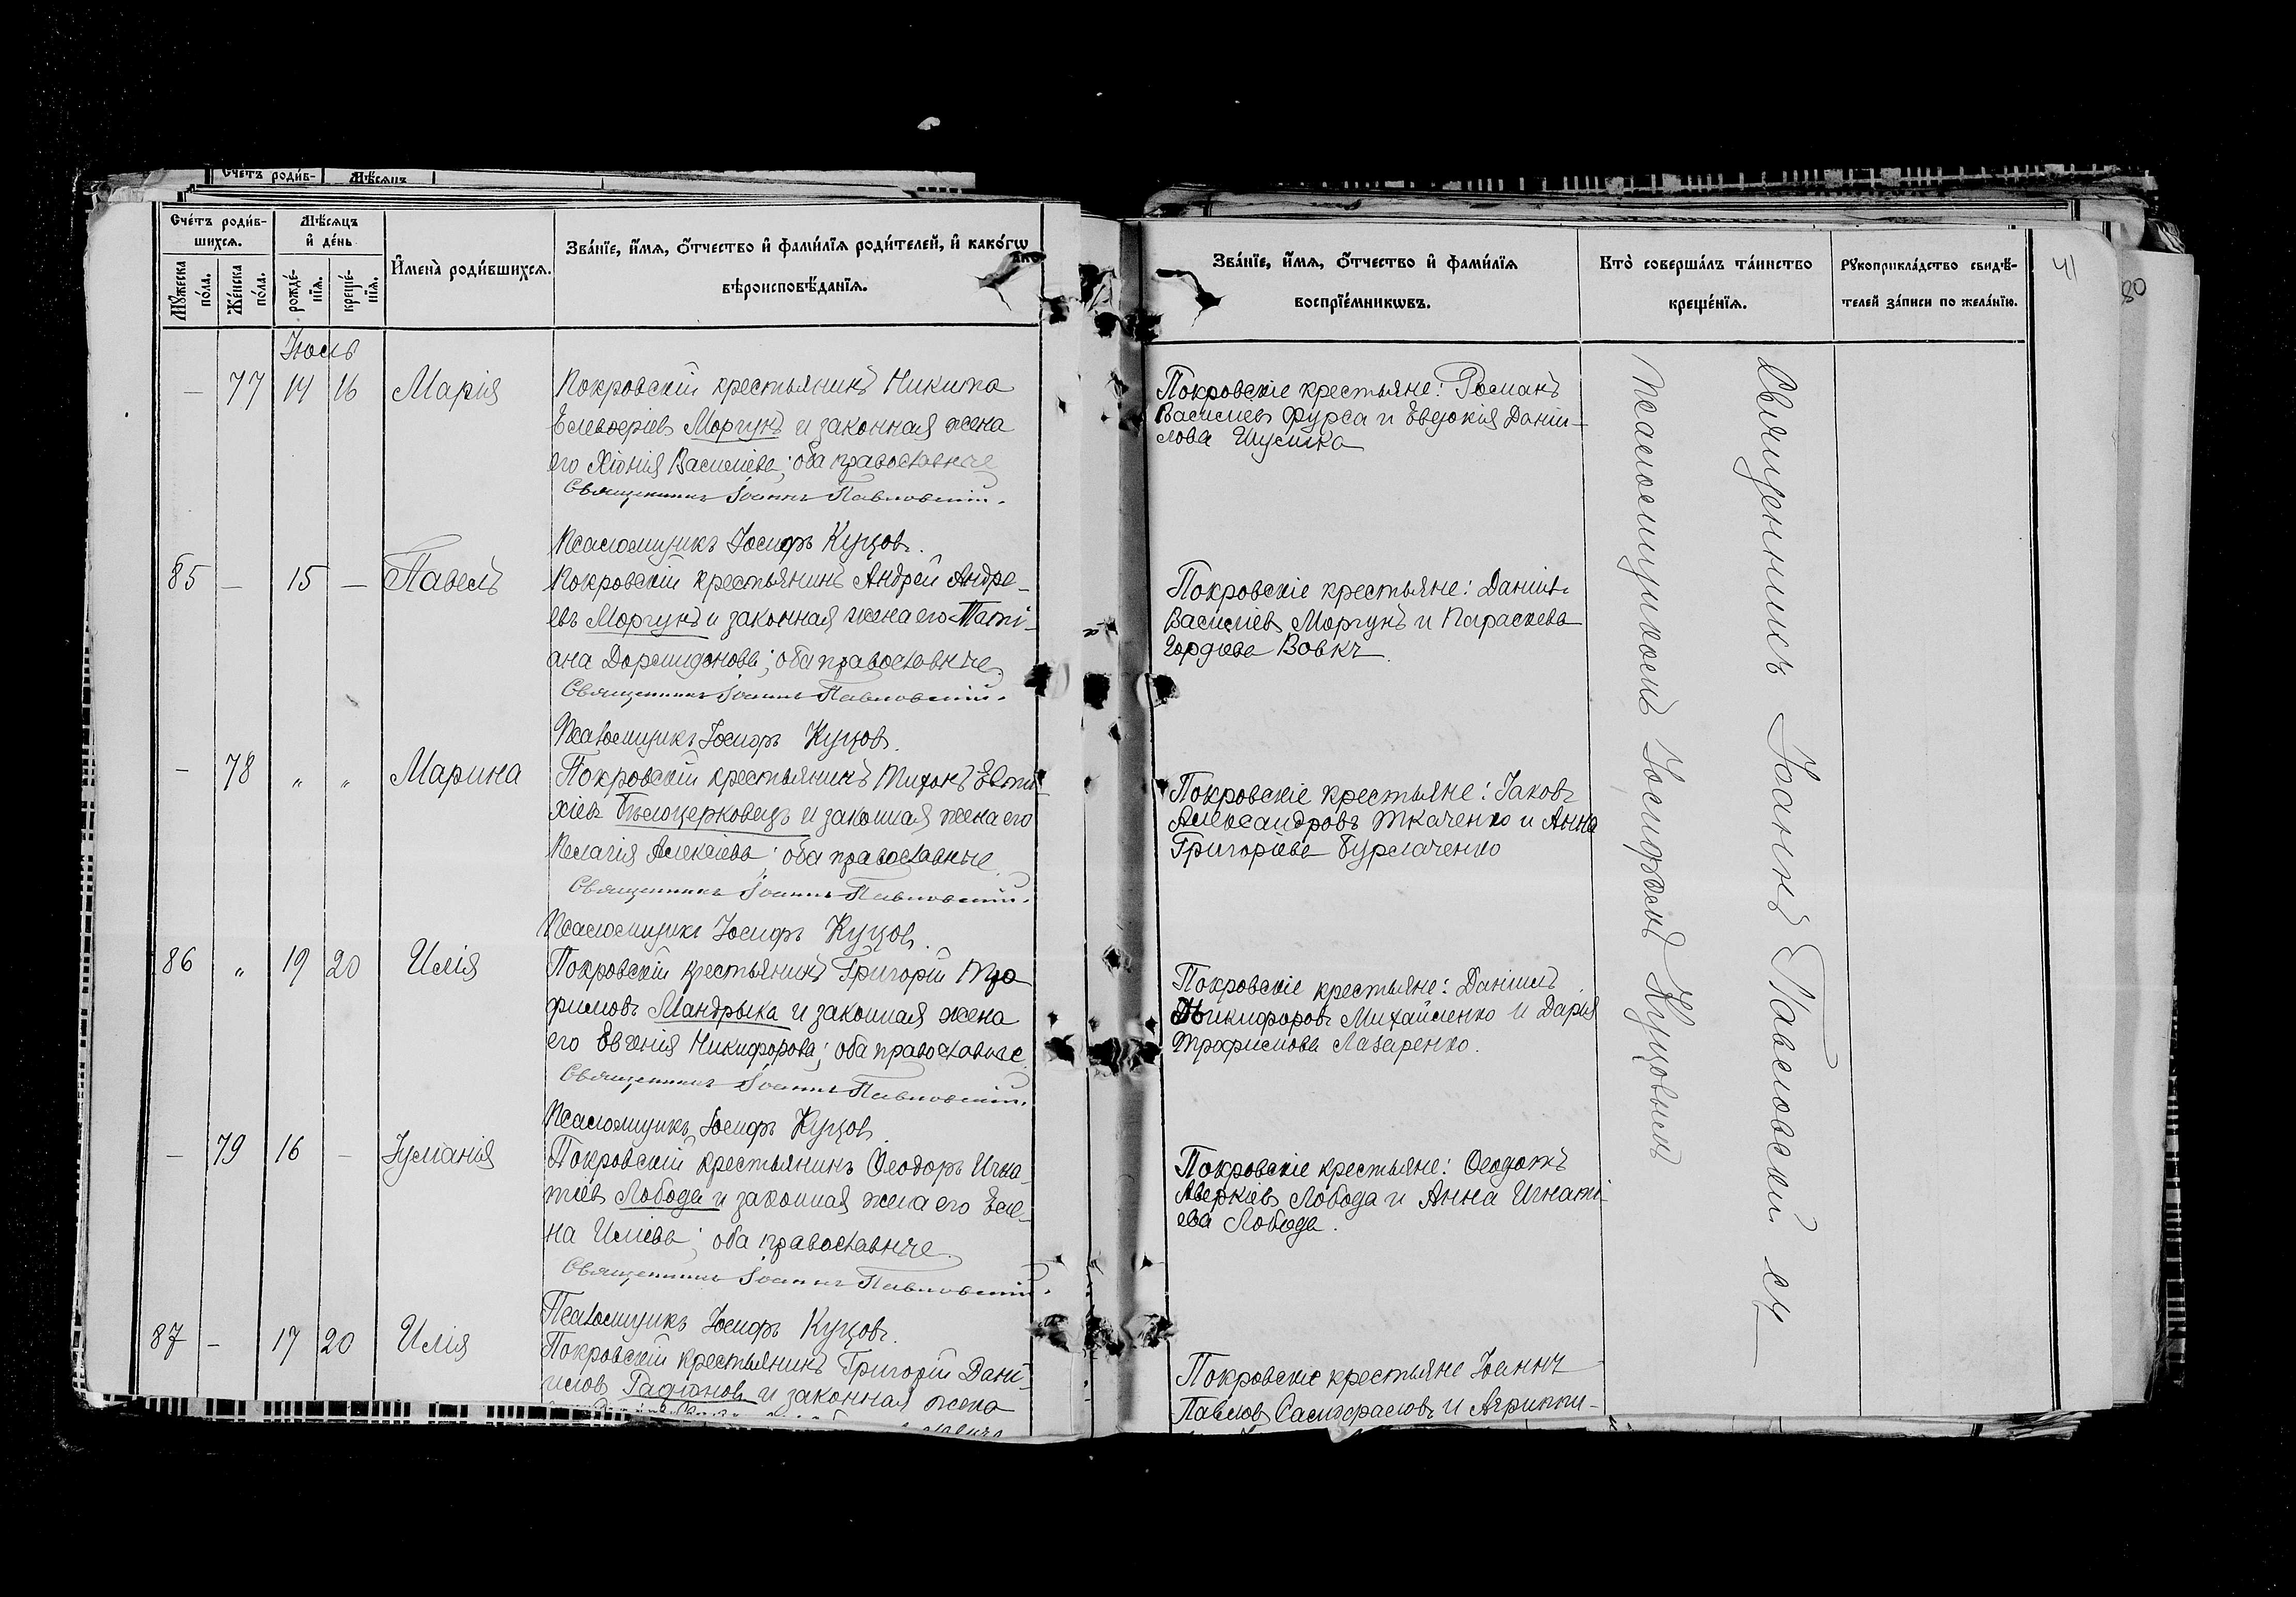 Счетъ родив-
Мѣсяцъ
Счетъ родив-
шихся.
Мѣсяцъ
и день
Мужеска
пола.
Женска
пола.
рожде-
нія.
креще-
нія.
Имена родившихся.
Званіе, имя, отчество и фамилія родителей, и какогѡ
вѣроисповѣданія.
Званіе, имя, отчество и фамилія
воспріемникѡвъ.
Кто совершалъ таинство
крещенія.
Рукоприкладство свидѣ-
телей записи по желанію.
41
80
Июль
— 77 14 16 Марія
Покровскій крестьянинъ Никита
Елевѳеріевъ Моргунъ и законная жена
его Хіонія Василіева; оба православные
Священникъ Іоаннъ Павловскій.
Псаломщикъ Іосифъ Куцовъ.
Покровскіе крестьяне: Романъ
Василіевъ Фурса и Евдокія Даніи-
лова
85 — 15 — Павелъ
Покровскій крестьянинъ Андрей Андре-
евъ Моргунъ и законная жена его Таті-
ана Дормидонова; оба православные.
Священникъ Іоаннъ Павловскій.
Псаломщикъ Іосифъ Куцовъ.
Покровскіе крестьяне: Даніилъ
Василіевъ Моргунъ и Параскева
Гордіева Вовкъ
— 78 " " Марина
Покровскій крестьянинъ Тихонъ Евти-
хіевъ Бѣлоцерковецъ и законная жена его
Пелагія Алексіева; оба православные.
Священникъ Іоаннъ Павловскій.
Псаломщикъ Іосифъ Куцовъ.
Покровскіе крестьяне: Іаковъ
Александровъ Ткаченко и Анна
Григоріева Бурлаченко
86 " 19 20 Илія
Покровскій крестьянинъ Григорій Тро-
фимовъ Мандрыка и законная жена
его Евгенія Никифорова; оба православные
Священникъ Іоаннъ Павловскій.
Псаломщикъ Іосифъ Куцовъ.
Покровскіе крестьяне: Даніилъ
Никифоровъ Михайленко и Дарія
Трофимова Лазаренко.
— 79 16 — Іуліанія
Покровскій крестьянинъ Ѳеодоръ Игна-
тіевъ Лобода и законная жена его Еле-
на Иліева; оба православные.
Священникъ Іоаннъ Павловскій.
Псаломщикъ Іосифъ Куцовъ.
Покровскіе крестьяне: Ѳеодотъ
Аверкіевъ Лобода и Анна Игнаті-
ева Лобода.
87 — 17 20 Илія
Покровскій крестьянинъ Григорій Дані-
иловъ Радіоновъ и законная жена
Покровскіе крестьяне Іоаннъ
Павловъ и Агриппи-
Священникъ Іоаннъ Павловскій съ
Псаломщикомъ Іосифомъ Куцовымъ